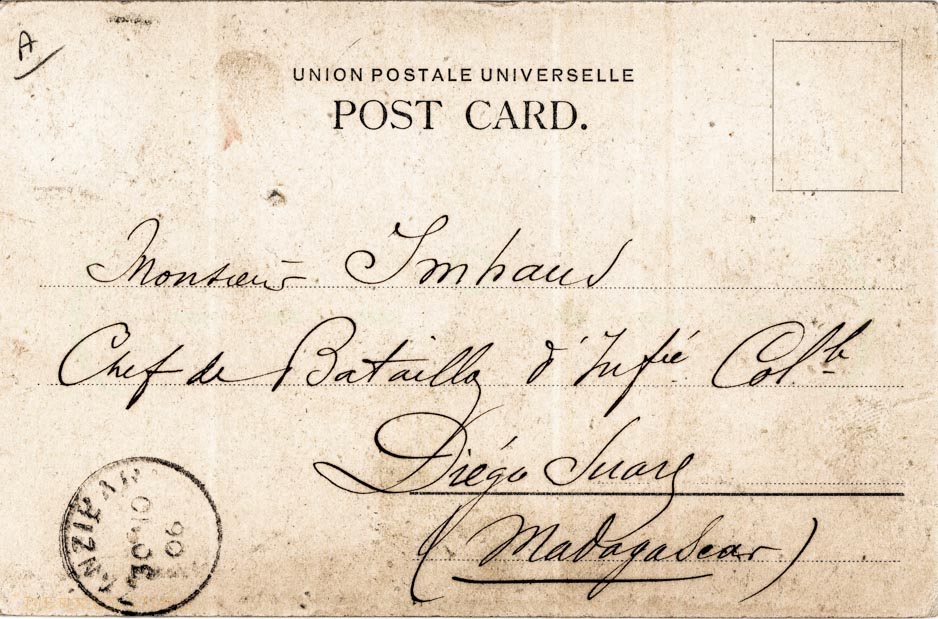 A
UNION POSTALE UNIVERSELLE
POST CARD.
Monsieur Imhaus
Chef de Bataillon d'Infie Colle
Diégo Suarez
(Madagascar)
ZANZIBAR
06